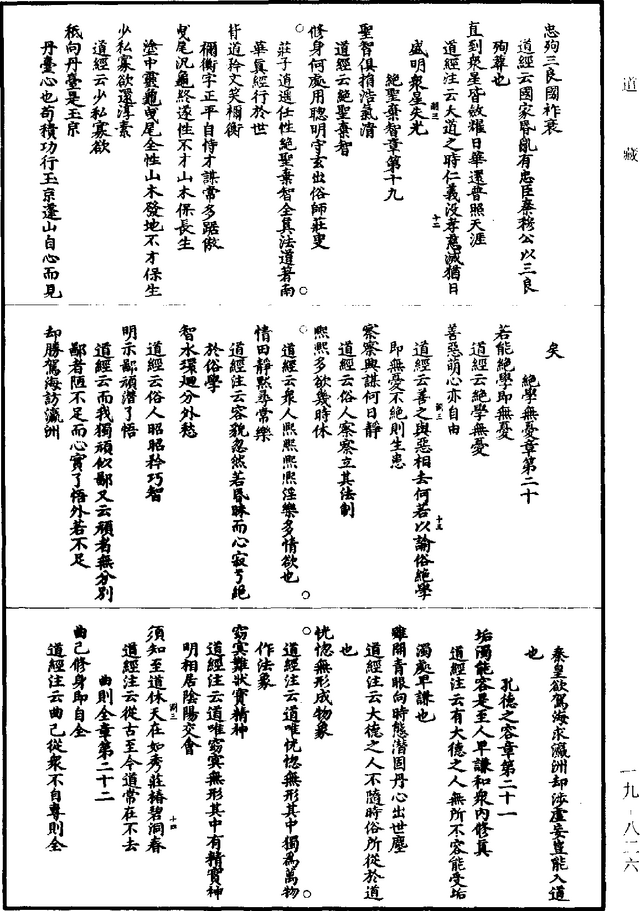 道藏
忠殉三良國祚衰
道經云國家昏亂有忠臣秦穆公以三良
殉葬也
直到衆星皆斂耀日華還普照天涯
道經注云大道之時仁義没孝慈滅猶日
盛明衆星失光
十二
絶聖棄智章第十九
聖智俱捐浩氣清
道經云絶聖棄智
修身何處用聰明宇玄出俗師莊叟
莊子逍遥任性絶聖棄智全真法道著南
華真經行於世
背道矜文笑禰衡
禰衡字正平自恃才謀常多踞傲
曳尾泥龜終遂性不才山木保長生
塗中靈龜曳尾全性山木發地不才保生
少私寡欲還淳素
道經云少私寡欲
秪向丹臺是玉京
丹臺心也苟積功行玉京蓬山自心而見
矣
絶學無憂章第二十
若能絶學即無憂
道經云絶學無憂
善惡萌心亦自由
道經云善之與惡相去何若以諭俗絶學
十三
即無憂不絶則生患
察察興謀何日靜
道經云俗人察察立其法制
熙熙多欲幾時休
道經云衆人熙熙熙熙淫樂多情欲也
情田靜默尋常樂
道經注云容貌忽然若昏昧而心寂兮絶
於俗學
智水環迴分外愁
道經云俗人昭昭矜巧智
明示鄙頑潛了悟
道經云而我獨頑似鄙又云頑者無分別
鄙者陋不足而心實了悟外若不足
却勝駕海訪瀛洲
秦皇欲駕海求瀛洲却涉虚妄豈能入道
也
孔德之容章第二十一
垢濁能容是至人卑謙和衆内修真
道經注云有大德之人無所不容能受垢
濁處卑謙也
雖開青眼向時態潛固丹心出世塵
道經注云大德之人不隨時俗所從於道
也
恍惚無形成物象
道經注云道唯恍惚無形其中獨爲萬物
作法象
窈冥難狀實精神
道經注云道唯窈冥無形其中有精實神
明相居陰陽交會
須知至道休天在如秀莊椿碧洞春
十四
道經注云從古至今道常在不去
曲則全章第二十二
曲己修身即自全
道經注云曲己從衆不自專則全
一九·八二六